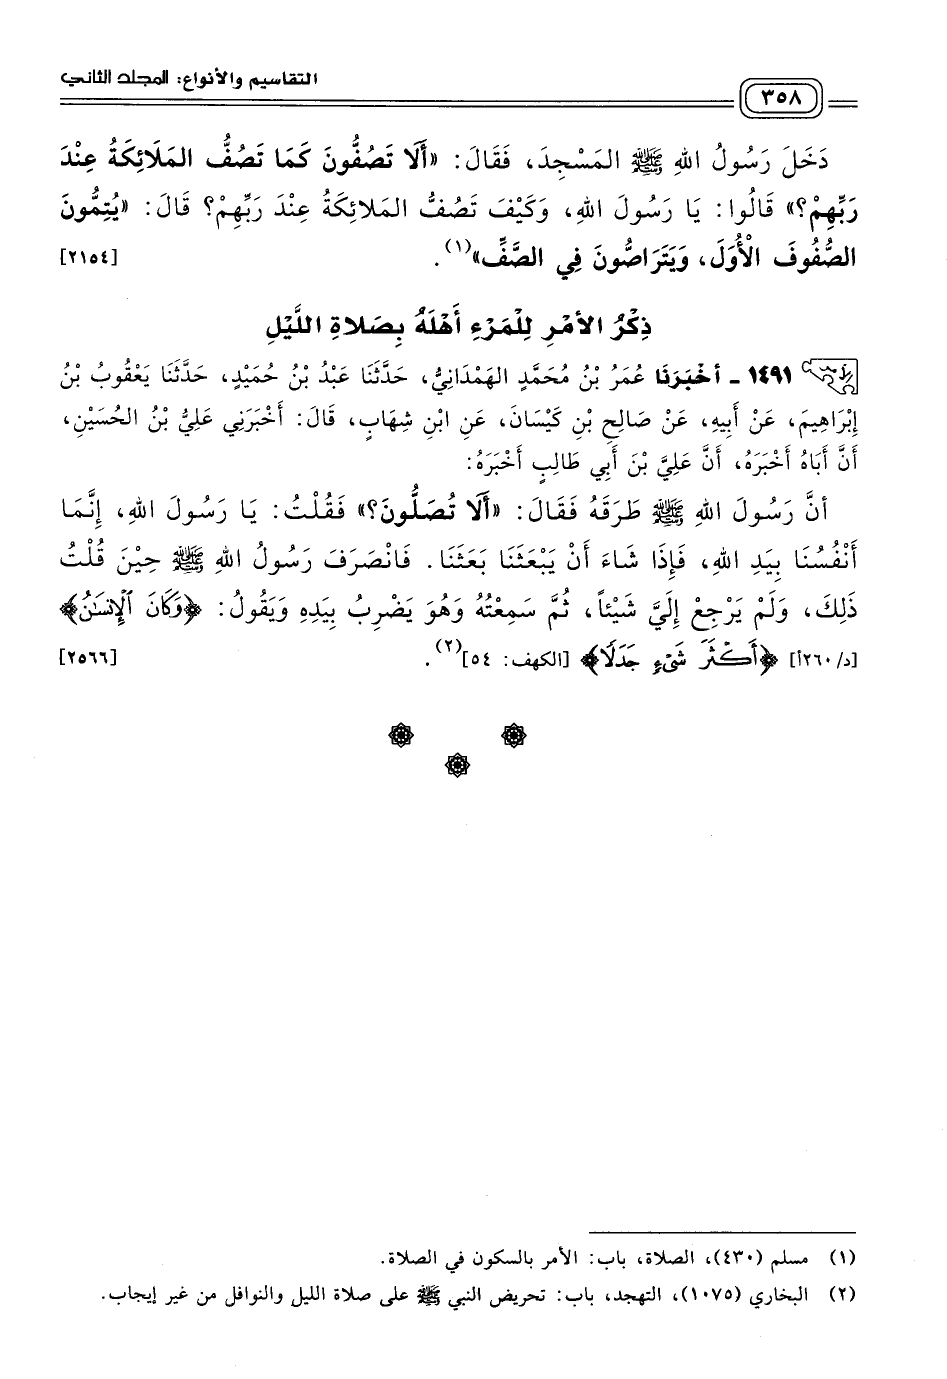 التقاسيم والأنواع: المجلد الثاني
٣٥٨
دَخَلَ رَسُولُ اللهِ ﷺ المَسْجِدَ، فَقَالَ: «أَلَا تَصُفُّونَ كَمَا تَصُفُّ المَلَائِكَةُ عِنْدَ
رَبِّهِمْ؟» قَالُوا: يَا رَسُولَ اللهِ، وَكَيْفَ تَصُفُّ المَلَائِكَةُ عِنْدَ رَبِّهِمْ؟ قَالَ: «يُتِمُّونَ
الصُّفُوفَ الْأُوَلَ، وَيَتَرَاصُّونَ فِي الصَّفِّ»(١). [٢١٥٤]
ذِكْرُ الأَمْرِ لِلْمَرْءِ أَهْلَهُ بِصَلَاةِ اللَّيْلِ
١٤٩١ - أَخْبَرَنَا عُمَرُ بْنُ مُحَمَّدٍ الهَمْدَانِيُّ، حَدَّثَنَا عَبْدُ بْنُ حُمَيْدٍ، حَدَّثَنَا يَعْقُوبُ بْنُ
إِبْرَاهِيمَ، عَنْ أَبِيهِ، عَنْ صَالِحِ بْنِ كَيْسَانَ، عَنِ ابْنِ شِهَابٍ، قَالَ: أَخْبَرَنِي عَلِيُّ بْنُ الحُسَيْنِ،
أَنَّ أَبَاهُ أَخْبَرَهُ، أَنَّ عَلِيَّ بْنَ أَبِي طَالِبٍ أَخْبَرَهُ:
أَنَّ رَسُولَ اللهِ ﷺ طَرَقَهُ فَقَالَ: «أَلَا تُصَلُّونَ؟» فَقُلْتُ: يَا رَسُولَ اللهِ، إِنَّمَا
أَنْفُسُنَا بِيَدِ اللهِ، فَإِذَا شَاءَ أَنْ يَبْعَثَنَا بَعَثَنَا. فَانْصَرَفَ رَسُولُ اللهِ ﷺ حِيْنَ قُلْتُ
ذَلِكَ، وَلَمْ يَرْجِعْ إِلَيَّ شَيْئاً، ثُمَّ سَمِعْتُهُ وَهُوَ يَضْرِبُ بِيَدِهِ وَيَقُولُ: ﴿وَكَانَ ٱلْإِنسَٰنُ﴾
[د/٢٦٠أ] ﴿أَكْثَرَ شَىْءٍ جَدَلًا﴾ [الكهف: ٥٤](٢). [٢٥٦٦]
(١) مسلم (٤٣٠)، الصلاة، باب: الأمر بالسكون في الصلاة.
(٢) البخاري (١٠٧٥)، التهجد، باب: تحريض النبي ﷺ على صلاة الليل والنوافل من غير إيجاب.